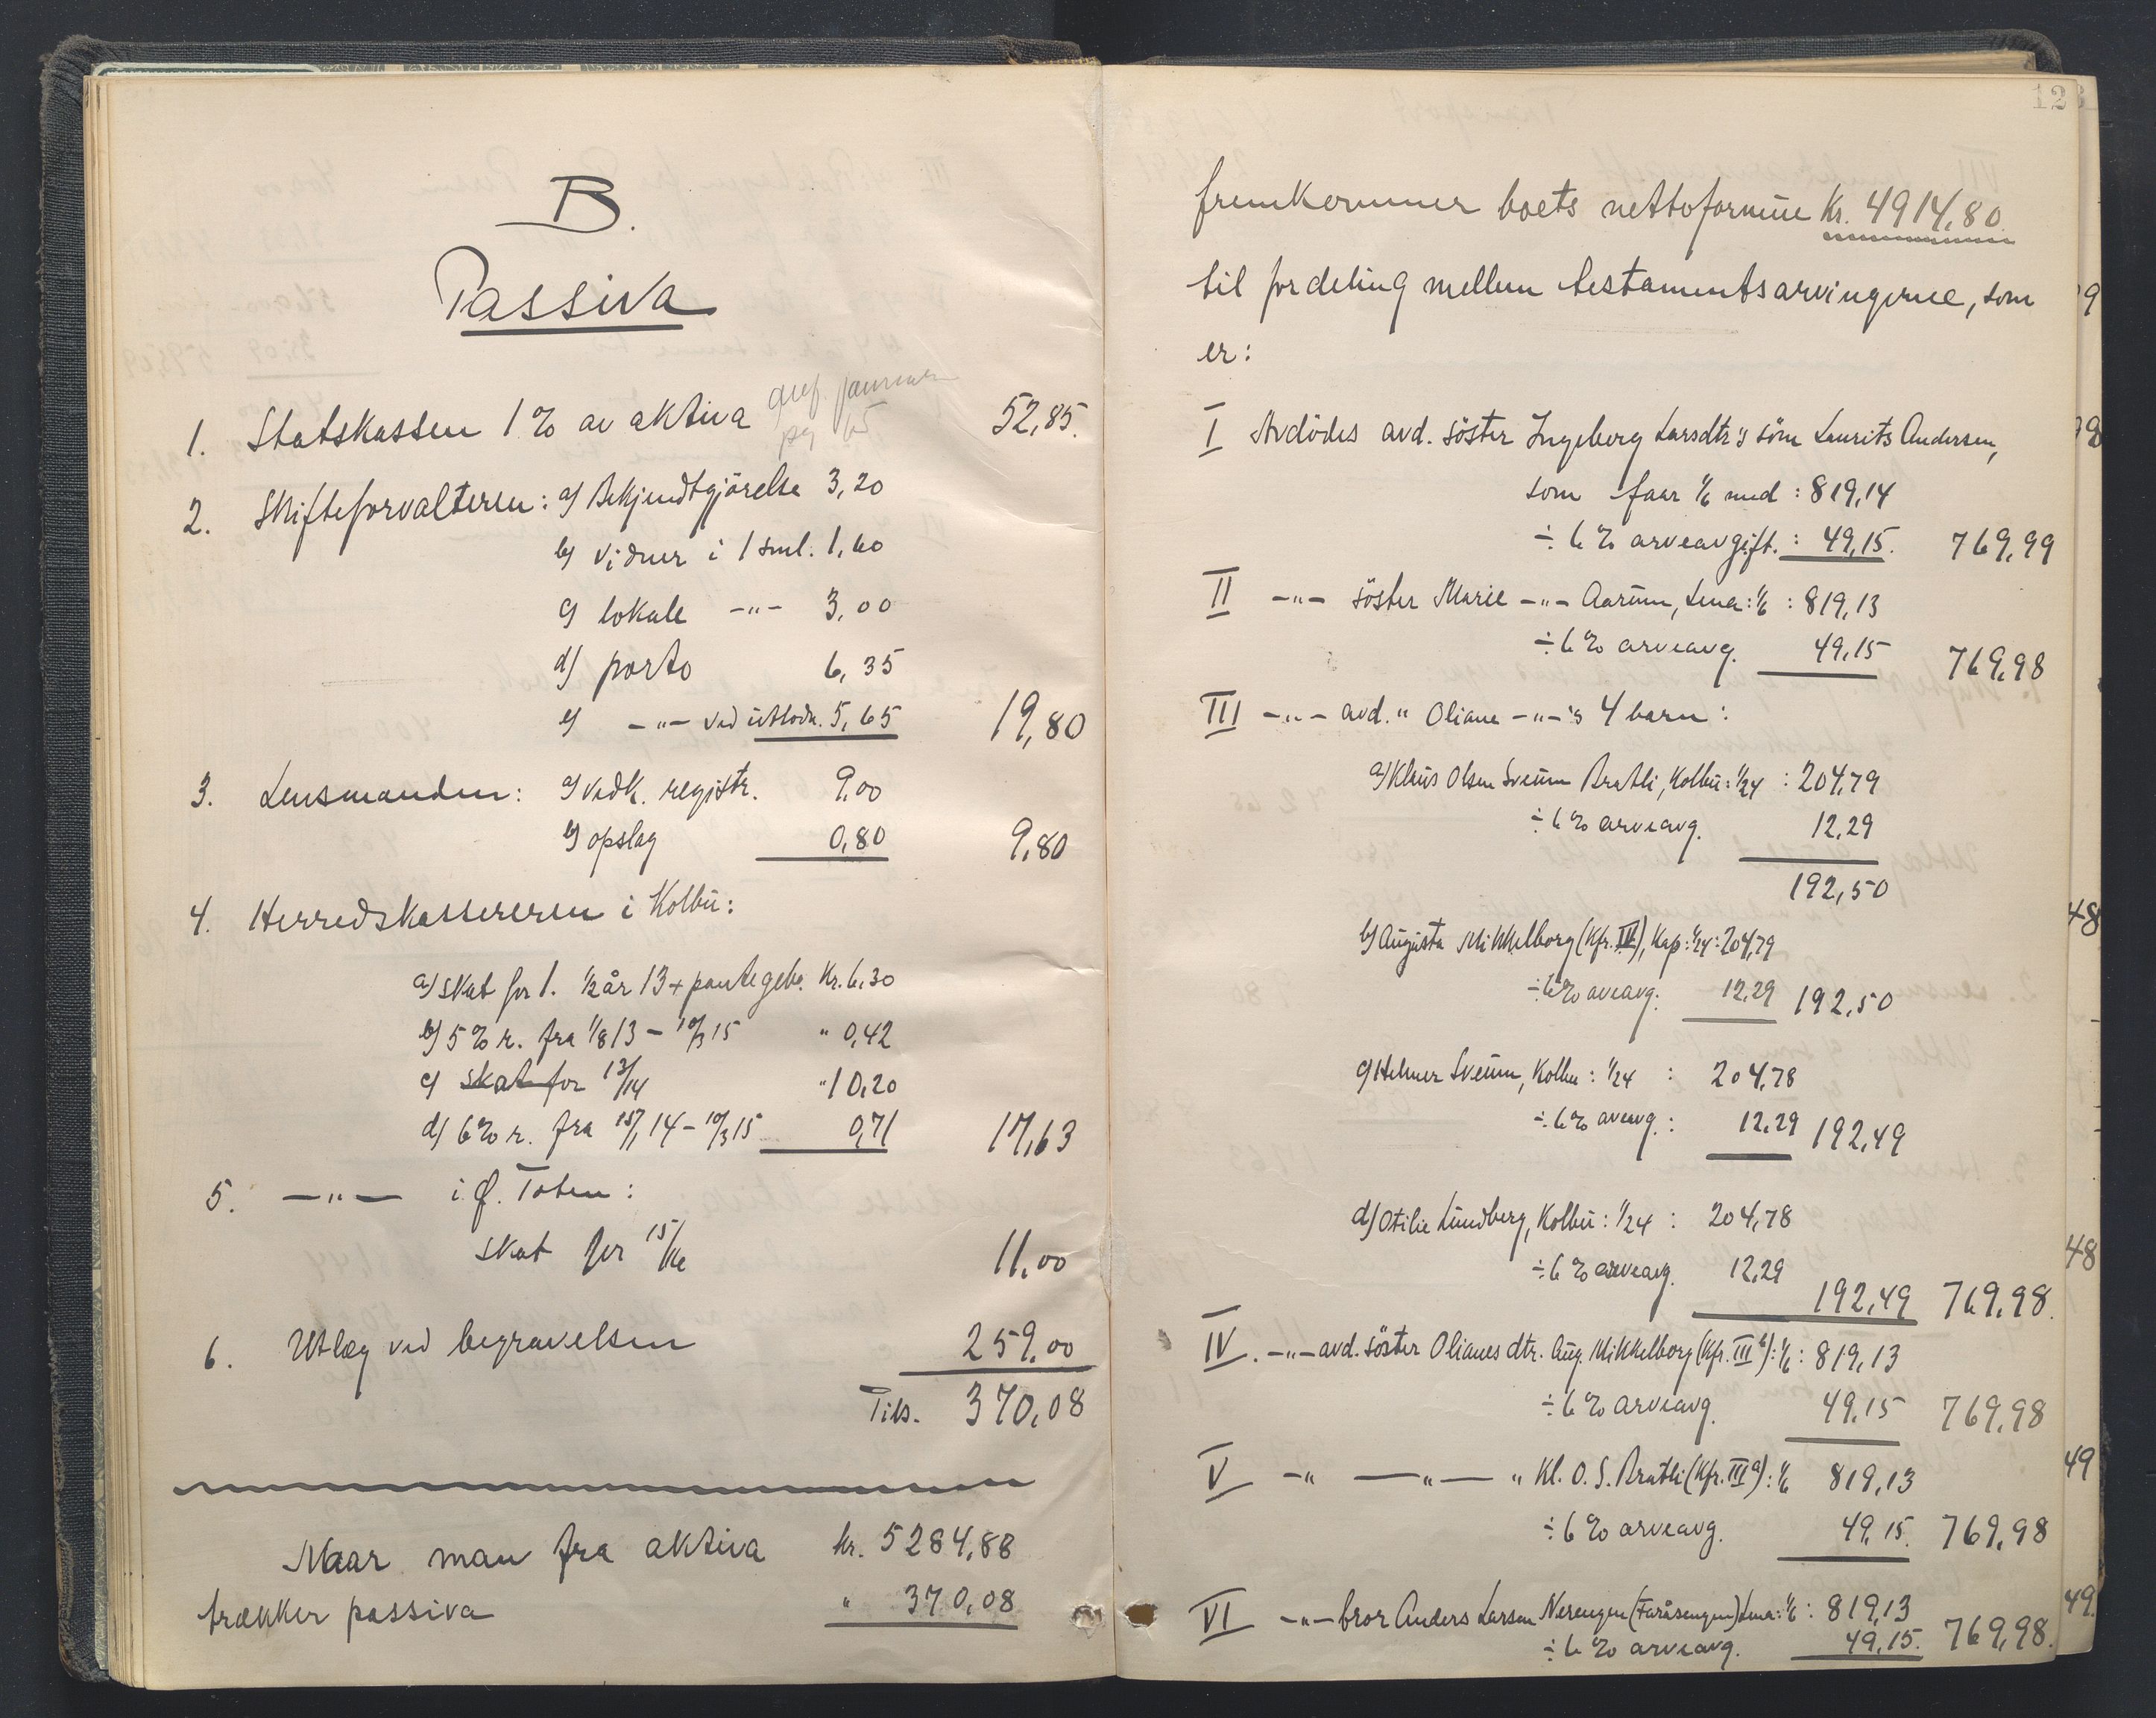 B.
Passiva
1. Statskassen 1% av aktiva 52,85.
2. Skifteforvalteren: a) Bekjendtgjörelse 3,20
b) vidner i 1 sml. 1,60
c) lokale -"- 3,00
d) porto 6,35
e) -"- ved utlodn. 5,65 19,80
3. Lensmanden: a) vedk. registr. 9,00
b) opslag 0,80 9,80
4. Herredskassereren i Kolbu:
a) skat for 1. ½ år 13 + pantegeb. Kr. 6,30
b) 5% r. fra 1/8 13 - 10/3 15 " 0,42
c) skat for 13/14 " 10,20
d) 6% r. fra 15/1 14 - 10/3 15 0,71 17,63
5. -"- i Ø. Toten:
skat for 15/16 11,00
6. Utlæg ved begravelsen 259,00
Tils. 370,08
Naar man fra aktiva kr. 5284,88
trækker passiva " 370,08
12
fremkommer boets nettoformue Kr. 4914,80.
til fordeling mellem testamentsarvingerne, som
er:
I Avdödes avd. söster Ingeborg Larsdtr's sön Laurits Andersen,
som faar 1/6 med : 819,14
÷ 6% arveavgift. : 49,15. 769,99
II -"- söster Marie -"- Aarum, Lena: 1/6 : 819,13
÷ 6% arveavg. 49,15 769,98
III -"- avd. " Oliane -"-'s 4 barn:
a) Klaus Olsen Sveum Bratli, Kolbu: 1/24 : 204,79
÷ 6% arveavg. 12,29
192,50
b) Augusta Mikkelborg (kfr. IV), Kap: 1/24: 204,79
÷ 6% arveavg. 12,29 192,50
c) Helmer Sveum, Kolbu: 1/24 : 204,78
÷ 6% arveavg.: 12,29 192,49
d) Otilie Lundberg, Kolbu: 1/24 : 204,78
÷ 6% arveavg. 12,29
192,49 769,98.
IV. -"- avd. söster Olianes dtr. Aug. Mikkelborg (kfr. III b): 1/6: 819,13
÷ 6% arveavg. 49,15 769,98
V -"- -"- " Kl. O. S. Bratli (kfr. III a): 1/6 819,13
÷ 6% arveavg. 49,15. 769,98
VI -"- bror Anders Larsen Nerengen (Faråsengen) Lena: 1/6: 819,13
÷ 6% arveavg. 49,15. 769,98.